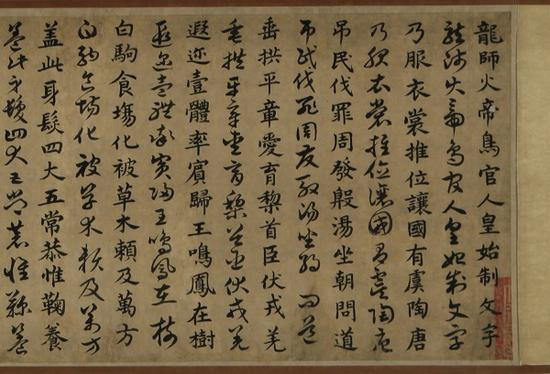 龍師火帝鳥官人皇始制文字
龍師火帝鳥官人皇始制文字
乃服衣裳推位讓國有虞陶唐
乃服衣裳推位讓國有虞陶唐
吊民伐罪周發殷湯坐朝問道
吊民伐罪周發殷湯坐朝問道
垂拱平章愛育黎首臣伏戎羌
垂拱平章愛育黎首臣伏戎羌
遐迩壹體率賓歸王鳴鳳在樹
遐迩壹體率賓歸王鳴鳳在樹
白駒食場化被草木賴及萬方
白駒食場化被草木賴及萬方
盖此身髮四大五常恭惟鞠養
盖此身髮四大五常恭惟鞠養